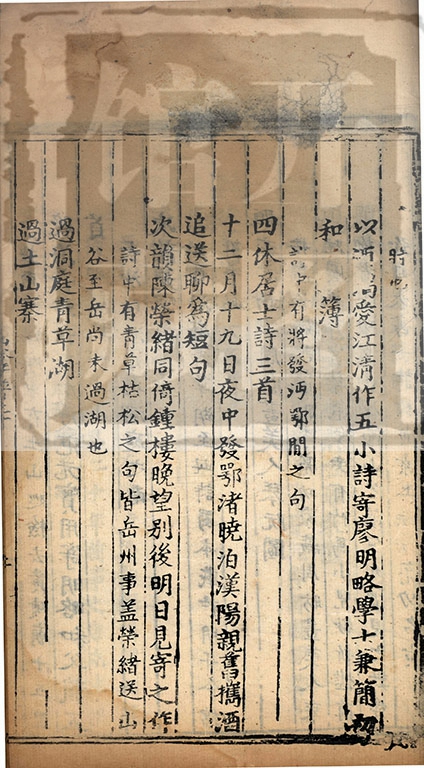 時也
以酒渴愛江清作五小詩寄廖明略學士兼簡初
和 簿
詩中有將發沔鄂間之句
四休居士詩三首
十二月十九日夜中發鄂渚曉泊漢陽親舊攜酒
追送聊為短句
次韻陳榮緒同倚鍾樓晚望別後明日見寄之作
詩中有青草枯松之句皆岳州事盖榮緒送山
谷至岳尚未過湖也
過洞庭青草湖
過土山寨